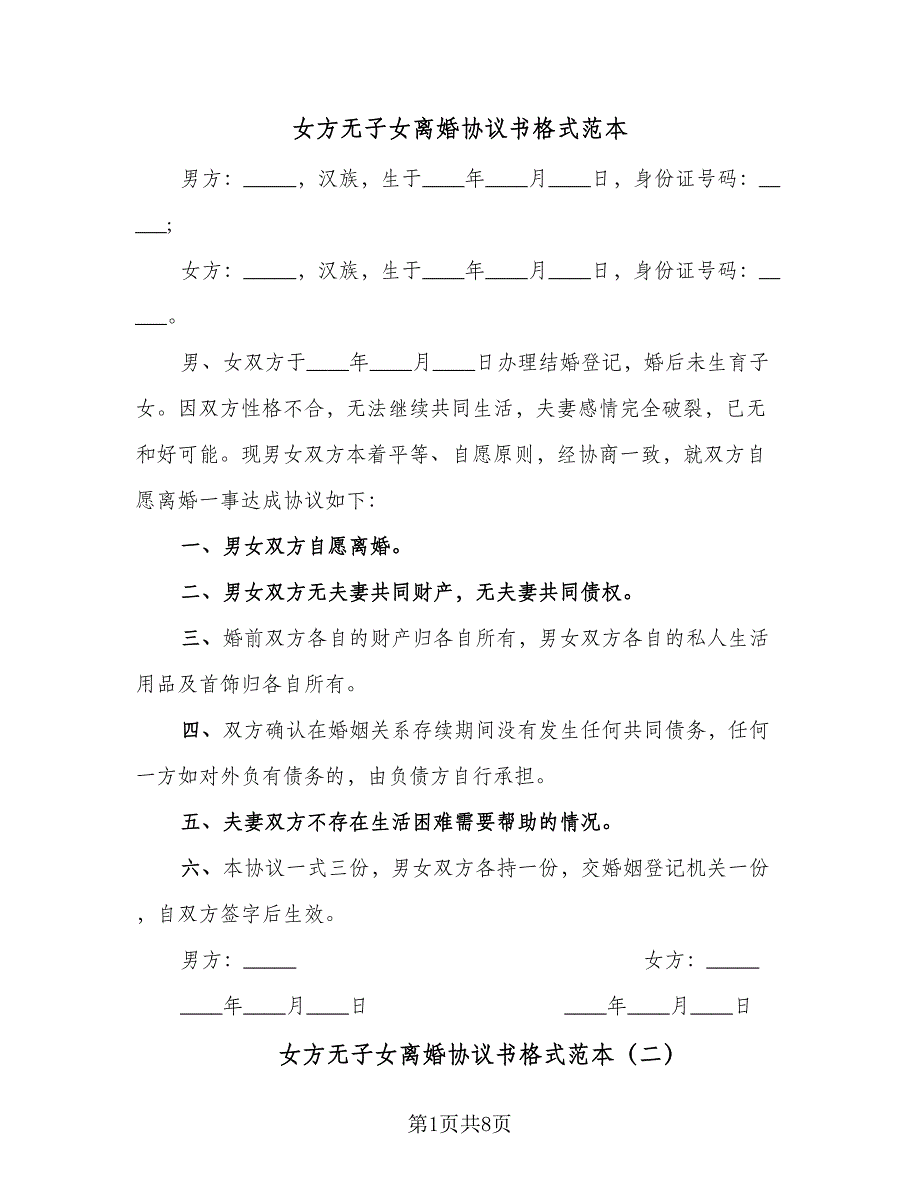 女方无子女离婚协议书格式范本
男方：_____，汉族，生于____年____月____日，身份证号码：__
___;
女方：_____，汉族，生于____年____月____日，身份证号码：__
___。
男、女双方于____年____月____日办理结婚登记，婚后未生育子
女。因双方性格不合，无法继续共同生活，夫妻感情完全破裂，已无
和好可能。现男女双方本着平等、自愿原则，经协商一致，就双方自
愿离婚一事达成协议如下：
一、男女双方自愿离婚。
二、男女双方无夫妻共同财产，无夫妻共同债权。
三、婚前双方各自的财产归各自所有，男女双方各自的私人生活
用品及首饰归各自所有。
四、双方确认在婚姻关系存续期间没有发生任何共同债务，任何
一方如对外负有债务的，由负债方自行承担。
五、夫妻双方不存在生活困难需要帮助的情况。
六、本协议一式三份，男女双方各持一份，交婚姻登记机关一份
，自双方签字后生效。
男方：_____ 女方：_____
____年____月____日 ____年____月____日
女方无子女离婚协议书格式范本（二）
第1页共8页